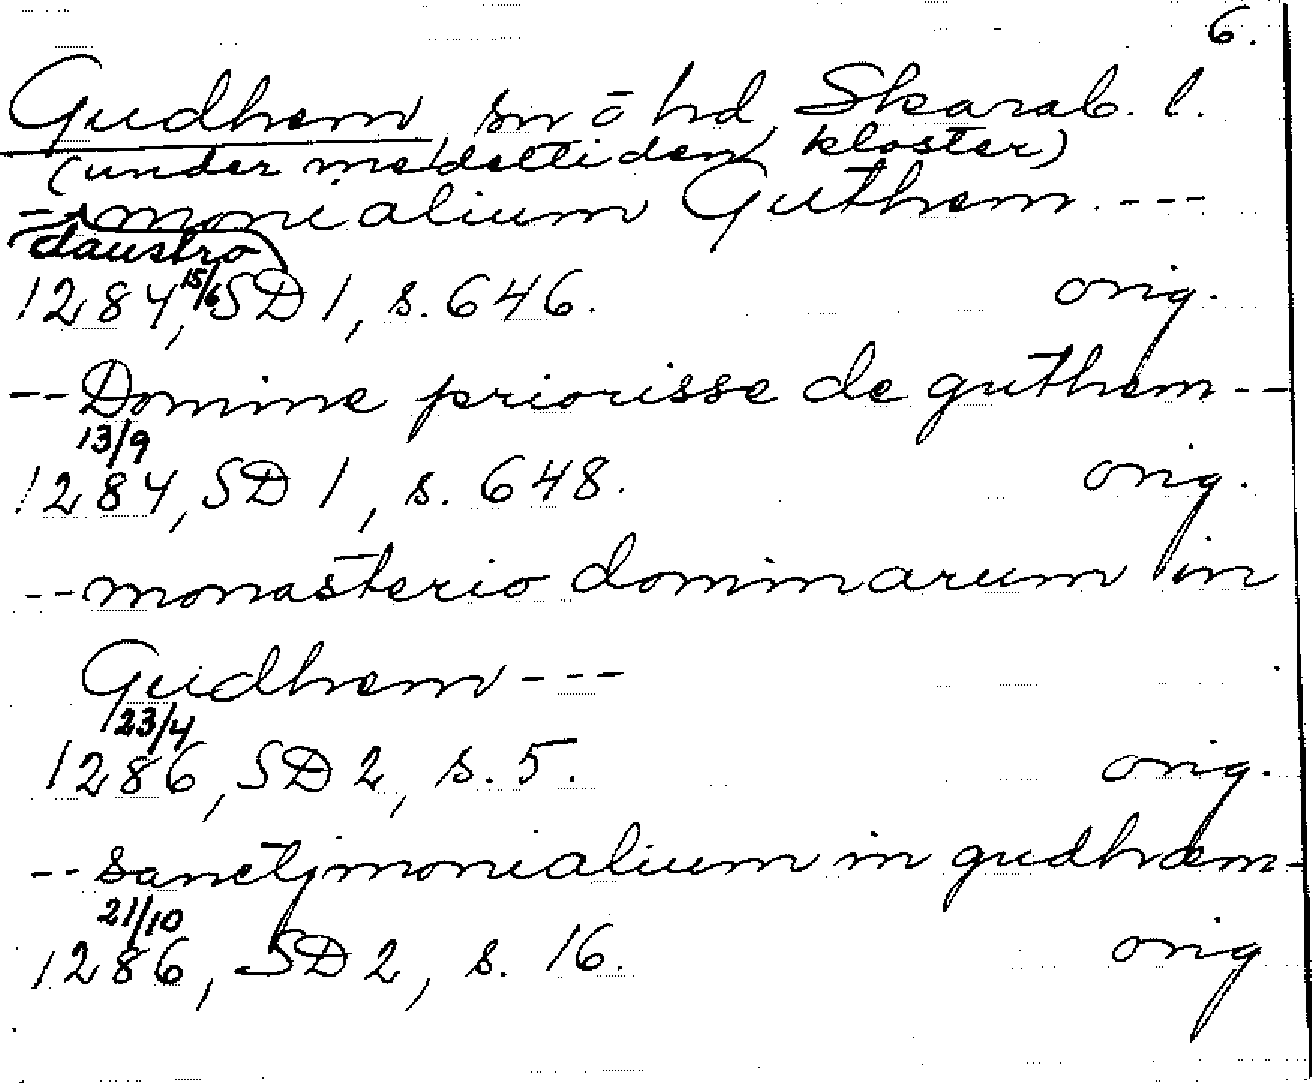 6.
Gudhem sn ō hd, Skarab. l.
(under medeltiden kloster)
-- monialium Guthem. ---
claustro
1284, 15/6 SD 1, s. 646. orig.
-- Domine priorisse de guthem --
13/9
1284, SD 1, s. 648. orig.
-- monasterio dominarum in
Gudhem ---
23/4
1286, SD 2, s. 5. orig.
-- sanctjmonialium in gudhæm -
21/10
1286, SD 2, s. 16. orig